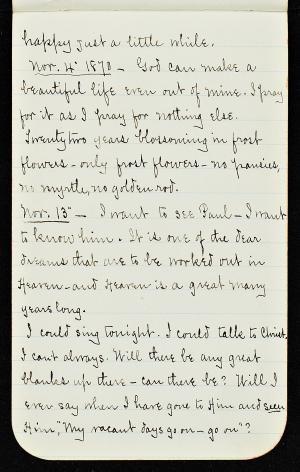 happy just a little while.
Nov. 4" 1870 - God can make a
beautiful life even out of mine. I pray
for it as I pray for nothing else.
Twenty two years blossoming in frost
flowers - only frost flowers - no pansies,
no myrtle, no golden rod.
Nov. 13" - I want to see Paul - I want
to know him. It is one of the dear
dreams that are to be worked out in
Heaven - and Heaven is a great many
years long.
I could sing tonight. I could talk to Christ.
I cant always. Will there be any great
blanks up there - can there be? Will I
ever say when I have gone to Him and seen
Him, "My vacant days go on - go on"?